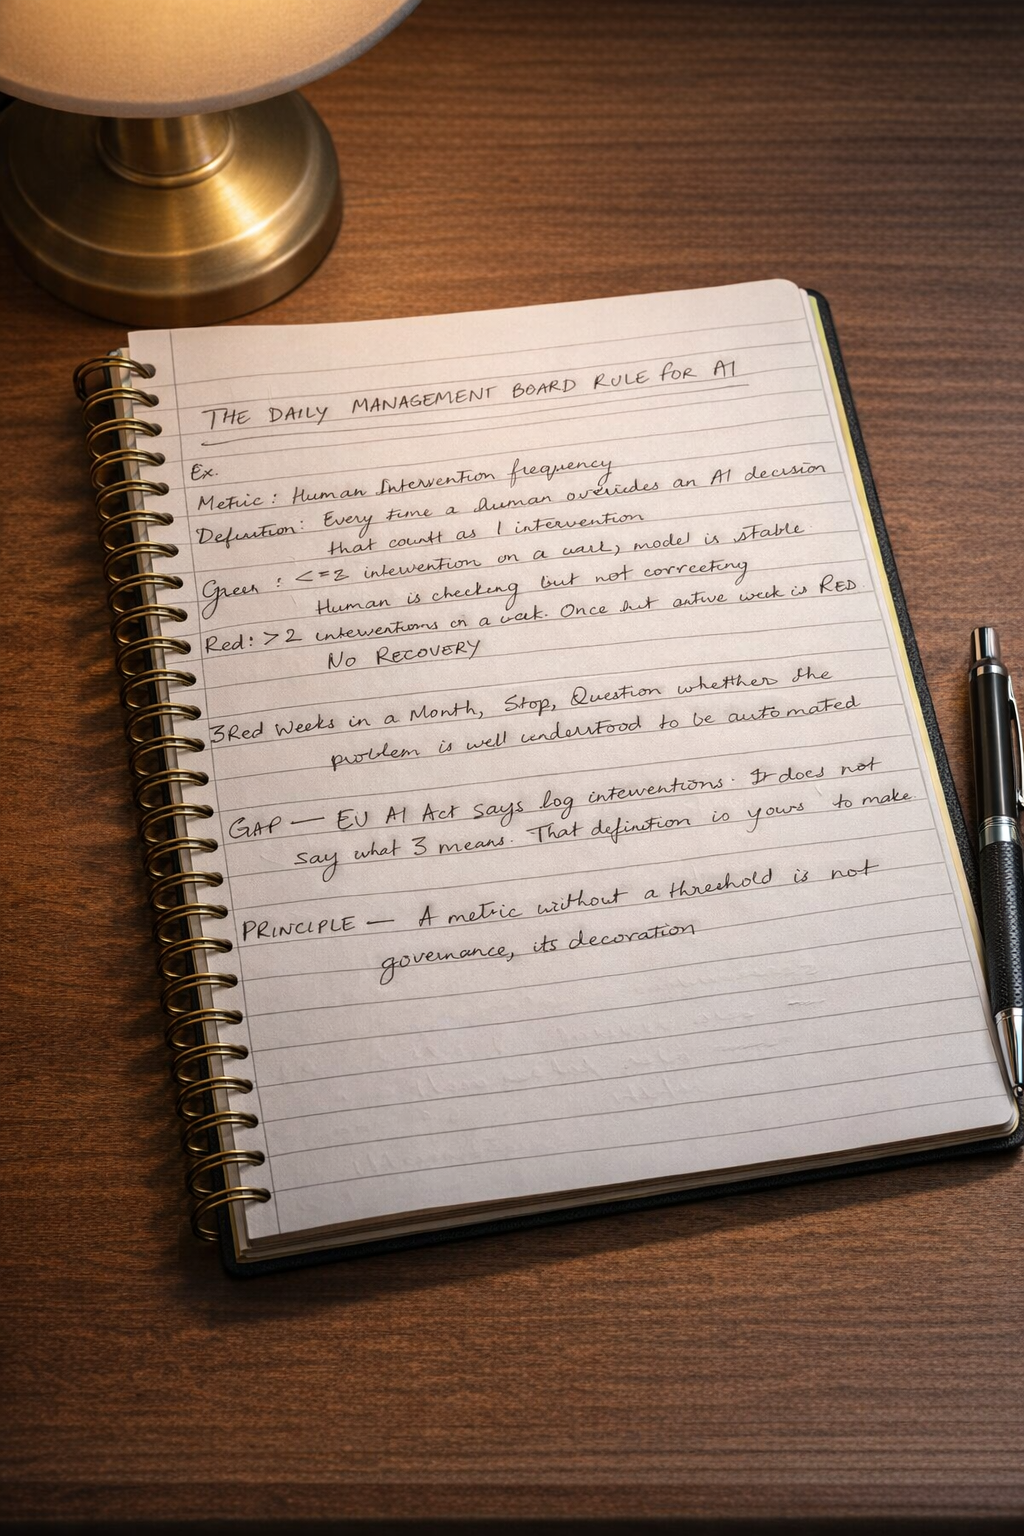 THE DAILY MANAGEMENT BOARD RULE FOR AI
Ex.
Metric : Human Intervention frequency
Definition: Every time a human overrides an AI decision
that countt as 1 intervention
Green : <=2 intervention on a week, model is stable
Human is checking but not correcting
Red: >2 interventions on a week. Once hit entire week is RED
NO RECOVERY
3 Red Weeks in a Month, Stop, Question whetther the
problem is well understood to be automated
GAP — EU AI Act says log interventions. It does not
say what 3 means. That definition is yours to make.
PRINCIPLE — A metric without a threshold is not
governance, its decoration